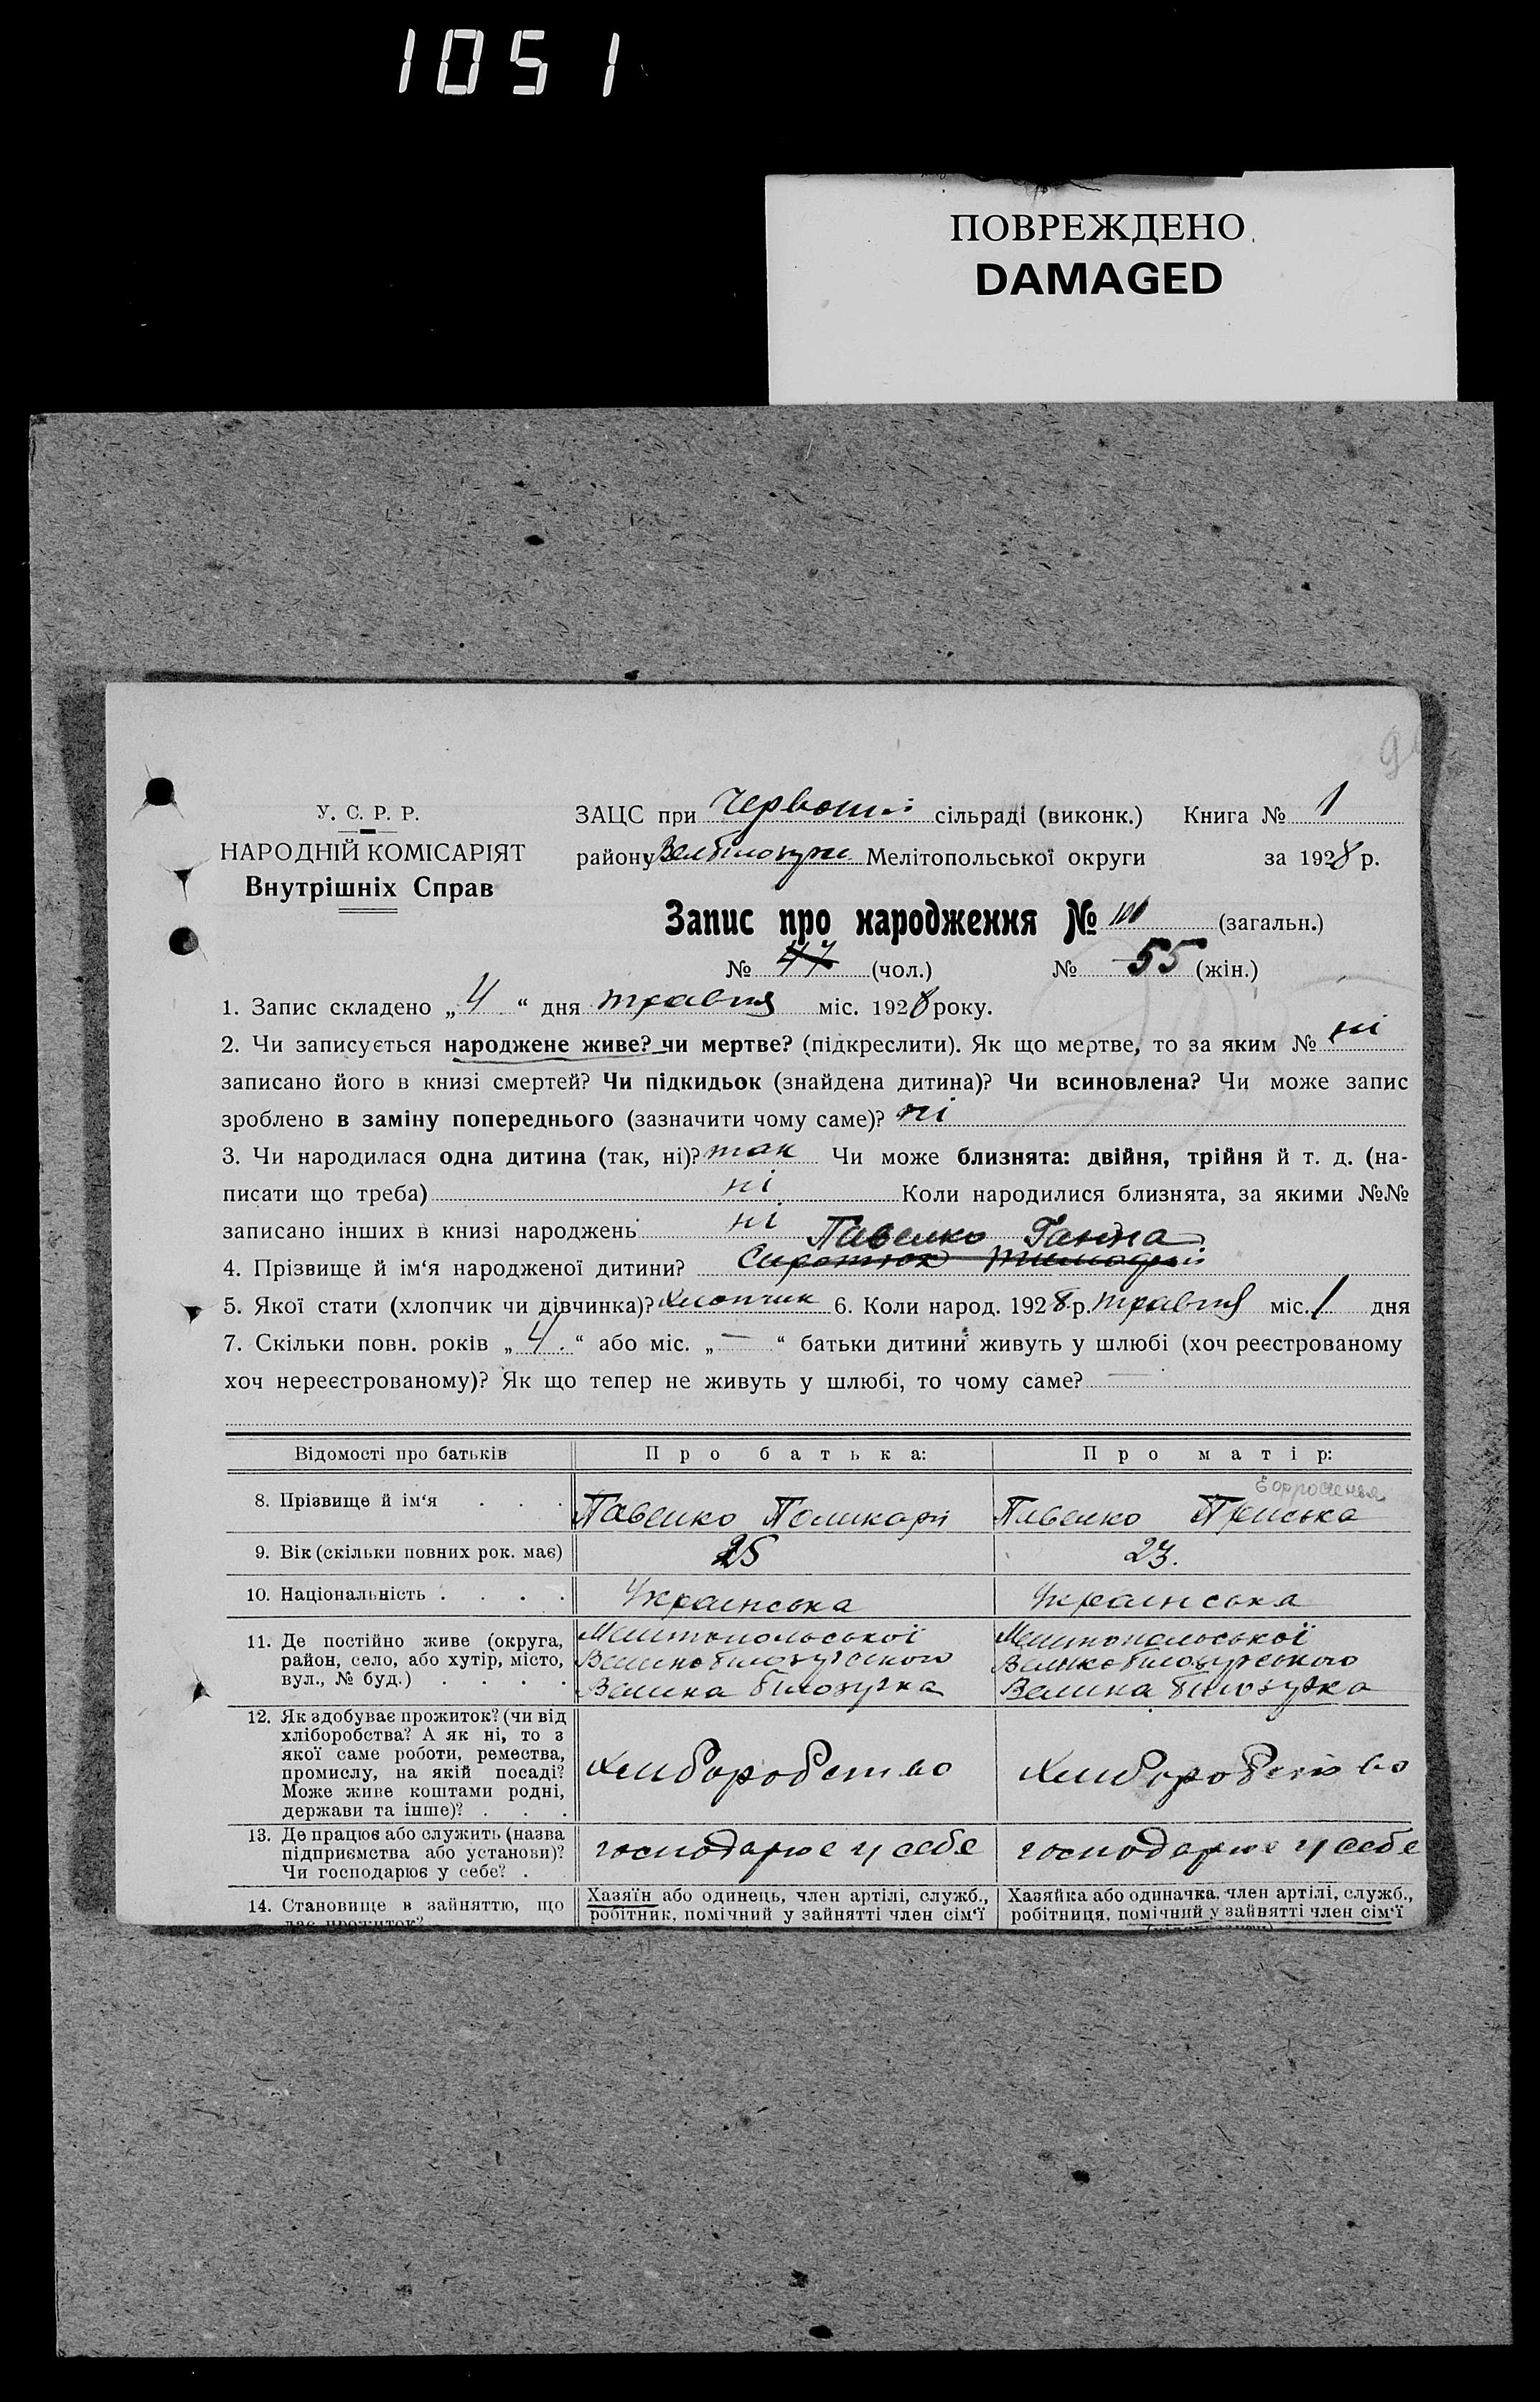 1051
ПОВРЕЖДЕНО
DAMAGED
У. С. Р. Р.
НАРОДНІЙ КОМІСАРІЯТ
Внутрішніх Справ
ЗАЦС при Червоній сільраді (виконк.) Книга № 1
району Мелітопольської округи за 1928 р.
Запис про народження № 101 (загальн.)
№ 47 (чол.) № 55 (жін.)
1. Запис складено „ 4 “ дня травня міс. 1928 року.
2. Чи записується народжене живе? чи мертве? (підкреслити). Як що мертве, то за яким № ні
записано його в книзі смертей? Чи підкидьок (знайдена дитина)? Чи всиновлена? Чи може запис
зроблено в заміну попереднього (зазначити чому саме)? ні
3. Чи народилася одна дитина (так, ні)? так Чи може близнята: двійня, трійня й т. д. (на-
писати що треба) ні Коли народилися близнята, за якими №№
записано інших в книзі народжень ні
Павенко Ганна
4. Прізвище й ім‘я народженої дитини?
5. Якої стати (хлопчик чи дівчинка)? хлопчик 6. Коли народ. 1928 р. травня міс. 1 дня
7. Скільки повн. років „ 4 “ або міс. „ — “ батьки дитини живуть у шлюбі (хоч реєстрованому
хоч нереєстрованому)? Як що тепер не живуть у шлюбі, то чому саме? —
Відомості про батьків
Про батька:
Про матір:
8. Прізвище й ім‘я . . .
Павенко
Павенко Пріська
9. Вік (скільки повних рок. має)
25
23.
10. Національність . . . .
Українська
Українська
11. Де постійно живе (округа,
район, село, або хутір, місто,
вул., № буд.) . . . .
Мелитопольської
Великобилозурського
Велика Билозурка
Мелитопольської
Великобилозурського
Велика Билозурка
12. Як здобуває прожиток? (чи від
хліборобства? А як ні, то з
якої саме роботи, ремества,
промислу, на якій посаді?
Може живе коштами родні,
держави та інше)? . . .
хлиборобство
хлиборобство
13. Де працює або служить (назва
підприємства або установи)?
Чи господарює у себе? .
господарює у себе
господарює у себе
14. Становище в зайняттю, що
дає прожиток?
Хазяїн або одинець, член артілі, служб.,
робітник, помічний у зайнятті член сім‘ї
Хазяйка або одиначка, член артілі, служб.,
робітниця, помічний у зайнятті член сім‘ї